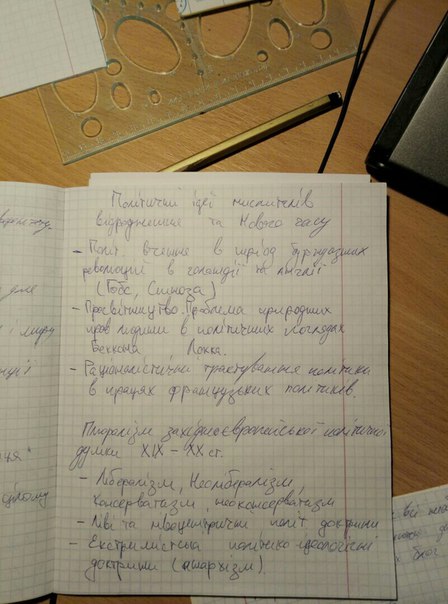 Політичні ідеї мислителів
відродження та Нового часу
- Політ. вчення в період буржуазних
революцій в голандії та Англії
(Гобс, Спіноза)
- Просвітництво. Проблема природних
прав людини в політичних поглядах
Беккона Локка.
- Раціоналістичні трактування політики
в працях французьких політиків.
Плюралізм західноєвропейської політичної
думки XIX - XX ст.
- Лібералізм, Неолібералізм,
консерватизм, неоконсерватизм
- Ліві та лівоцентричні політ доктрини
- Екстремістські політико ідеологічні
доктрини (анархізм).
для
цілому
всі